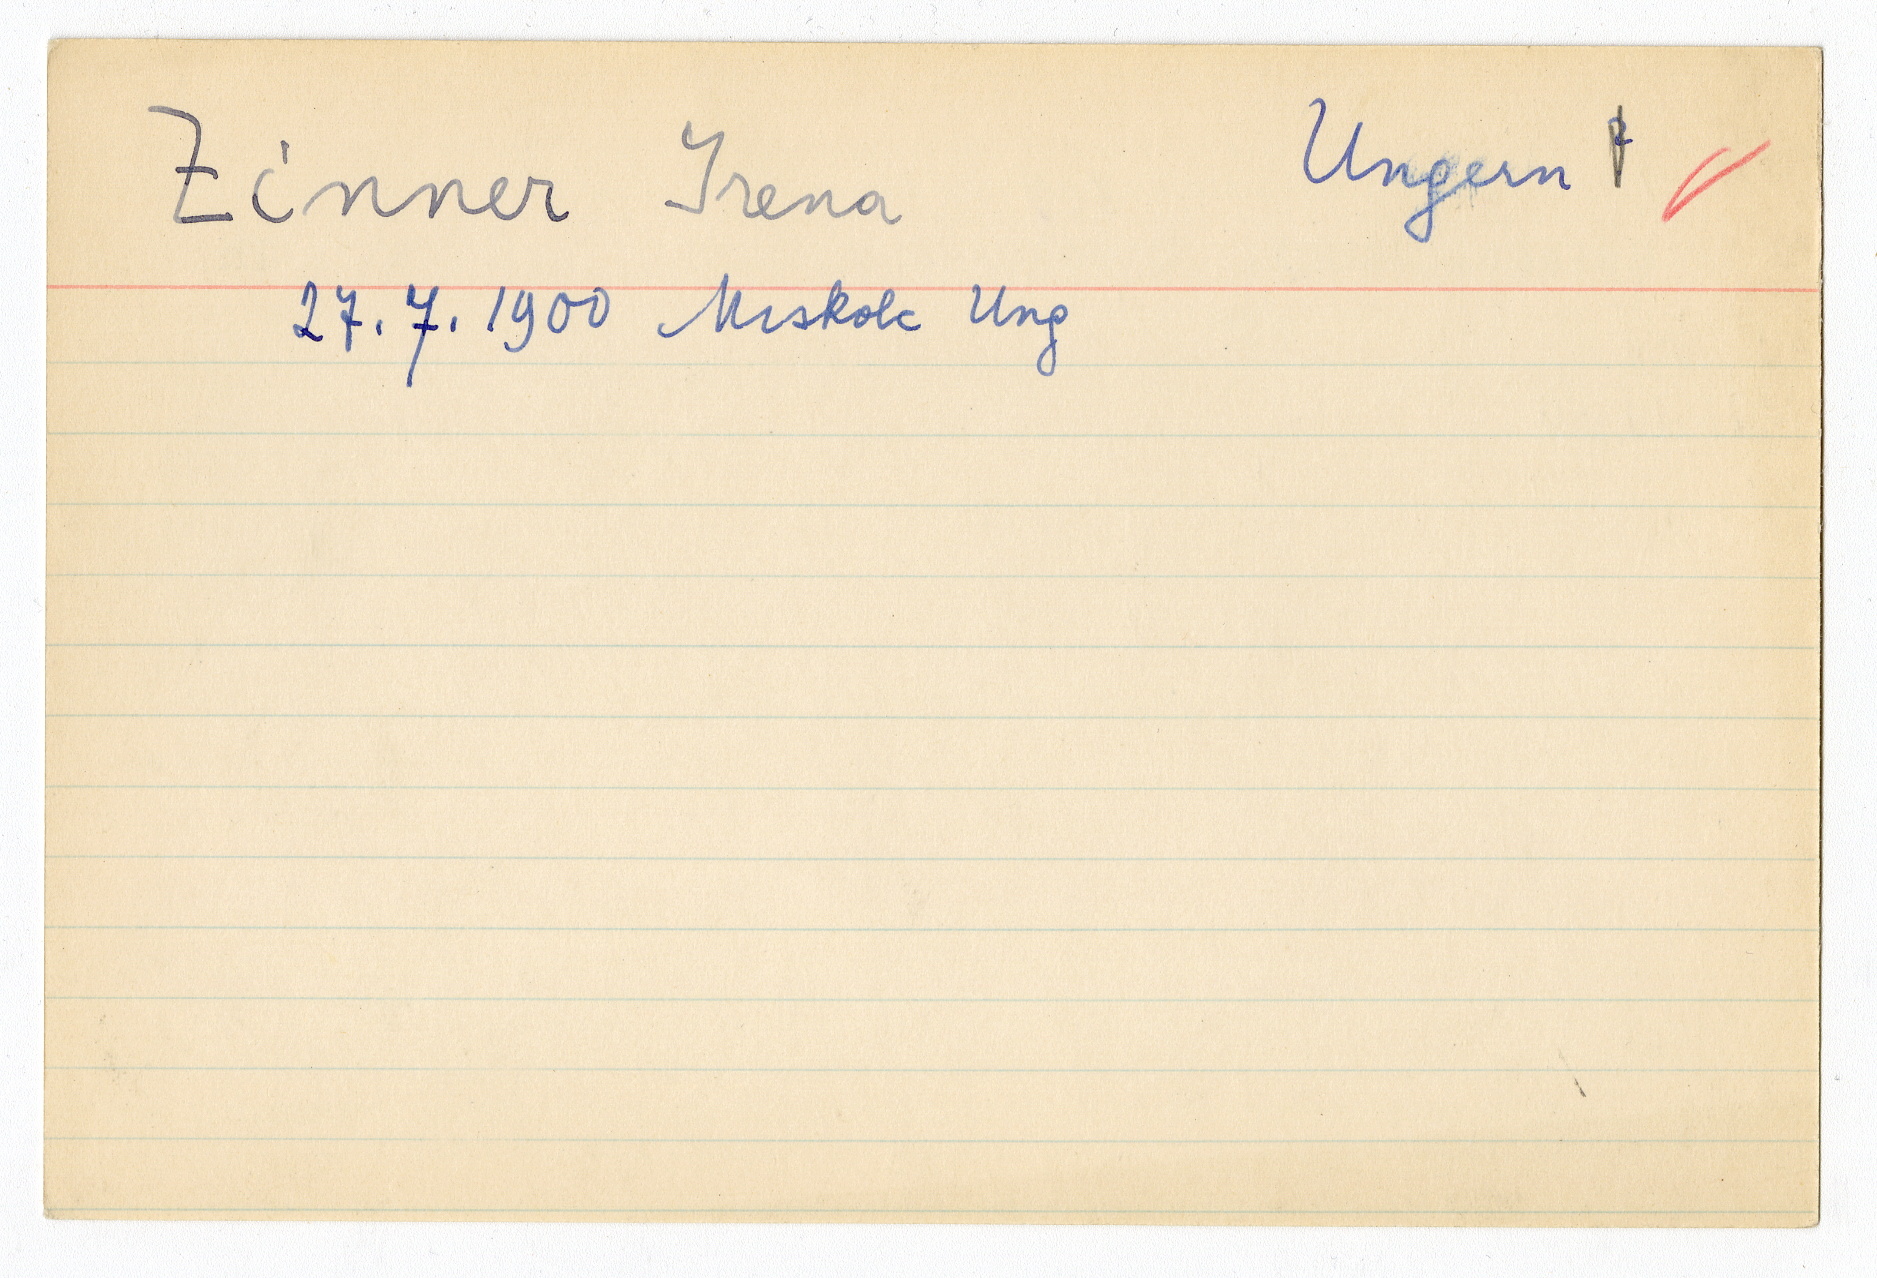 Zinner Irena Ungern
27.7.1900 Miskolc Ung